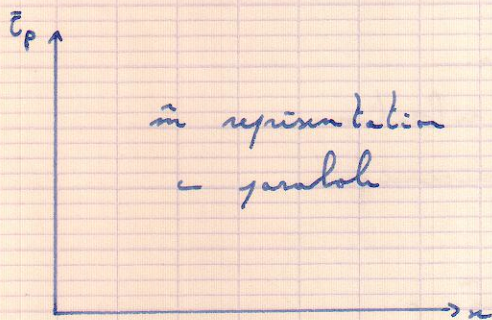 Ēp
m̂ représentation
parabole
x